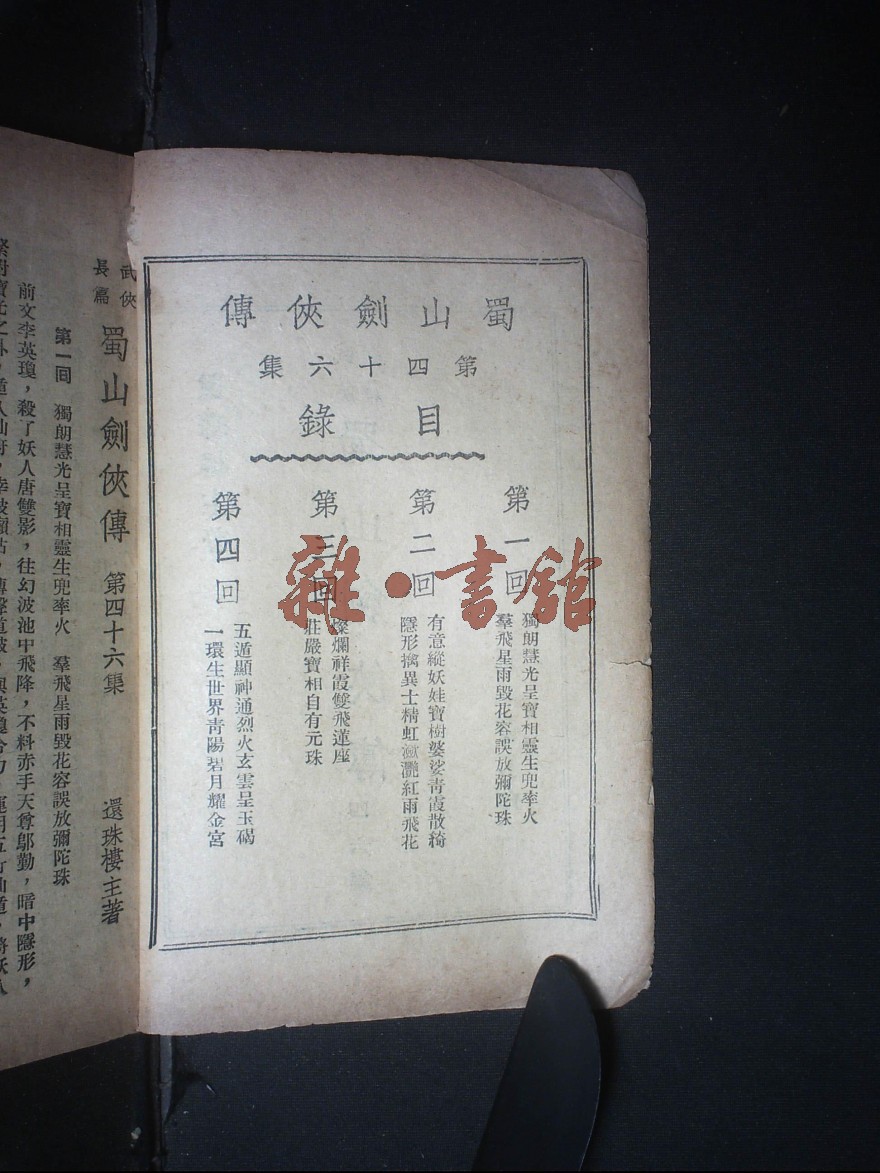 蜀山劍俠傳
第四十六集
目錄
第一回
獨朗慧光呈寶相靈生兜率火
羣飛星雨毀花容誤放彌陀珠
第二回
有意縱妖娃寶樹婆娑青霞散綺
隱形擒異士精虹瀲灧紅雨飛花
第三回
燦爛祥霞雙飛蓮座
莊嚴寶相自有元珠
第四回
五遁顯神通烈火玄雲呈玉碣
一環生世界青陽碧月耀金宮
雜·書館
武俠
長篇
蜀山劍俠傳 第四十六集 還珠樓主著
第一回 獨朗慧光呈寶相靈生兜率火 羣飛星雨毀花容誤放彌陀珠
前文李英瓊，殺了妖人唐雙影，往幻波池中飛降，不料赤手天尊鄔勤，暗中隱形，